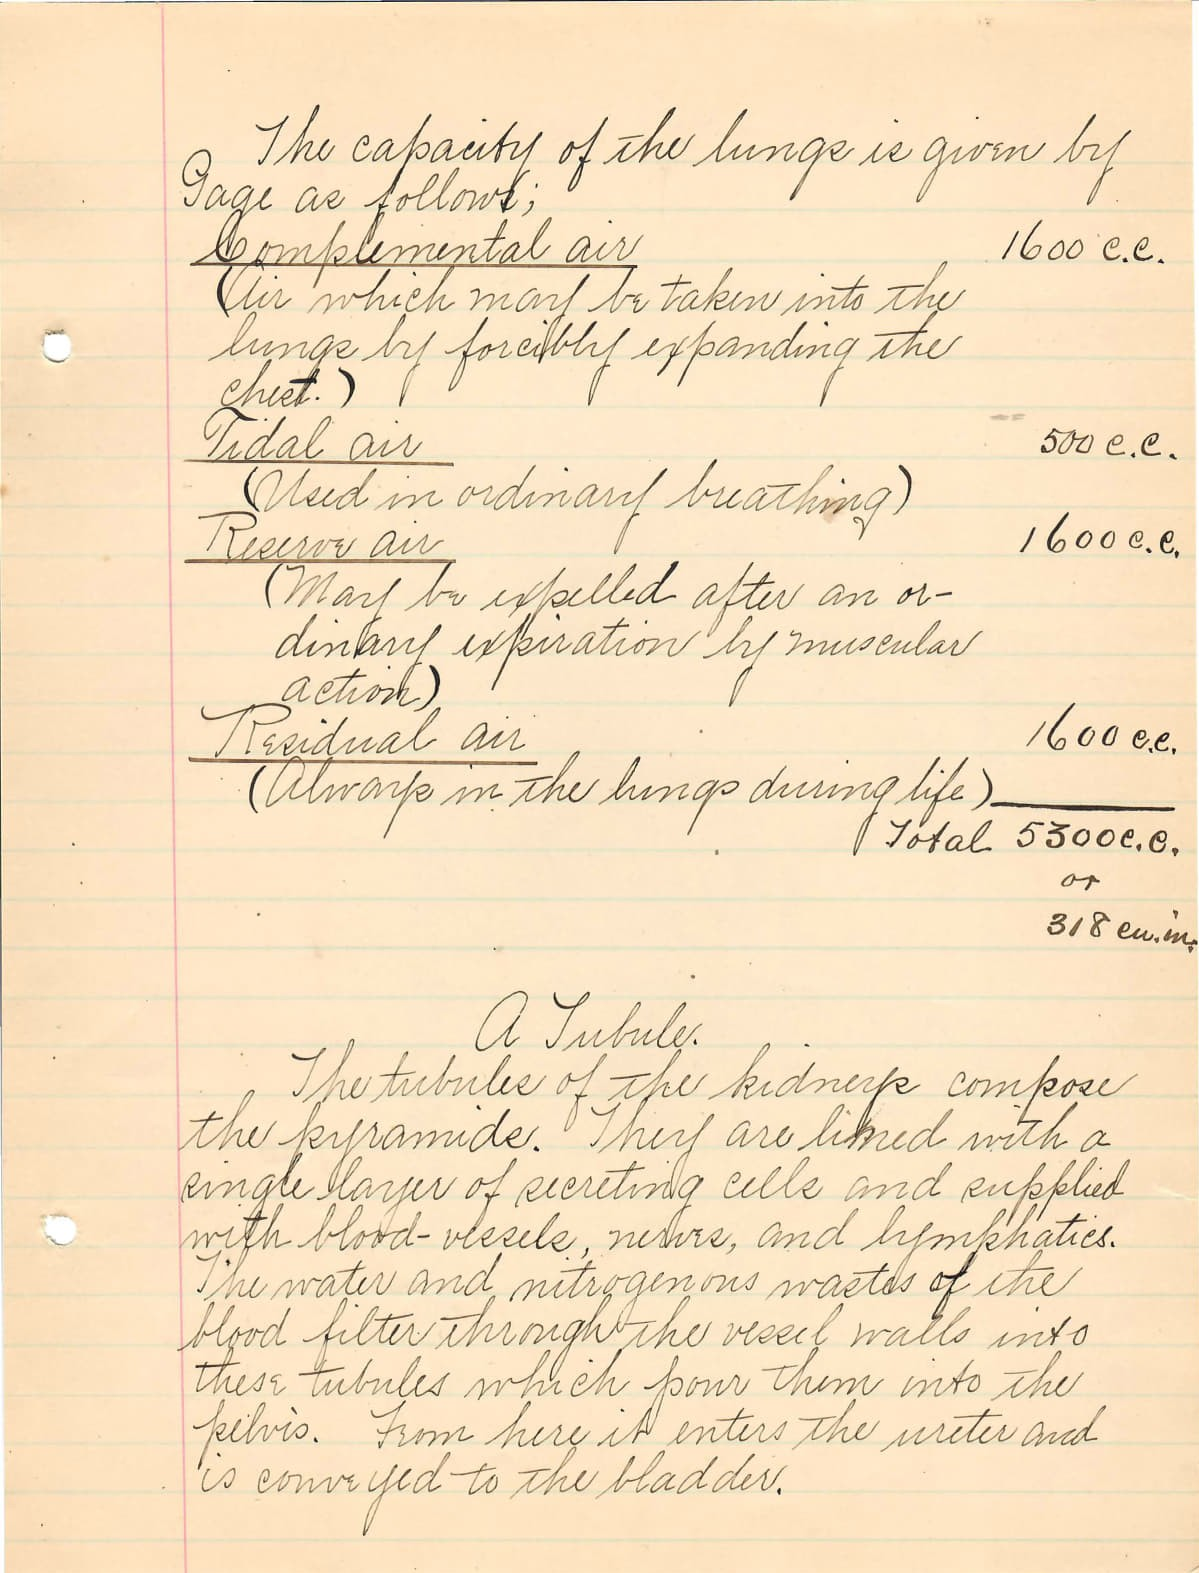 The capacity of the lungs is given by
Gage as follows;
Complemental air 1600 c.c.
(Air which may be taken into the
lungs by forcibly expanding the
chest.)
Tidal air 500 c.c.
(Used in ordinary breathing)
Reserve air 1600 c.c.
(May be expelled after an or-
dinary expiration by muscular
action)
Residual air 1600 c.c.
(Always in the lungs during life)
Total 5300 c.c.
or
318 cu. in.
A Tubule.
The tubules of the kidneys compose
the pyramids. They are lined with a
single layer of secreting cells and supplied
with blood-vessels, nerves, and lymphatics.
The water and nitrogenous wastes of the
blood filter through the vessel walls into
these tubules which pour them into the
pelvis. From here it enters the ureter and
is conveyed to the bladder.